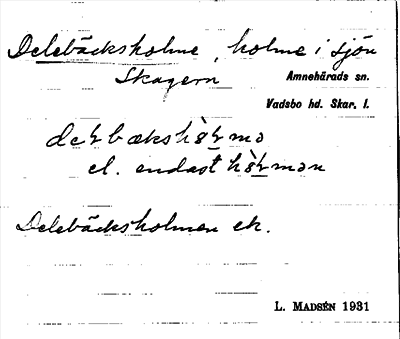 Delebäcksholme, holme i sjön
Skagern
Amnehärads sn.
Vadsbo hd. Skar. l.
el. endast
Delebäcksholmen ek.
L. MADSÉN 1931